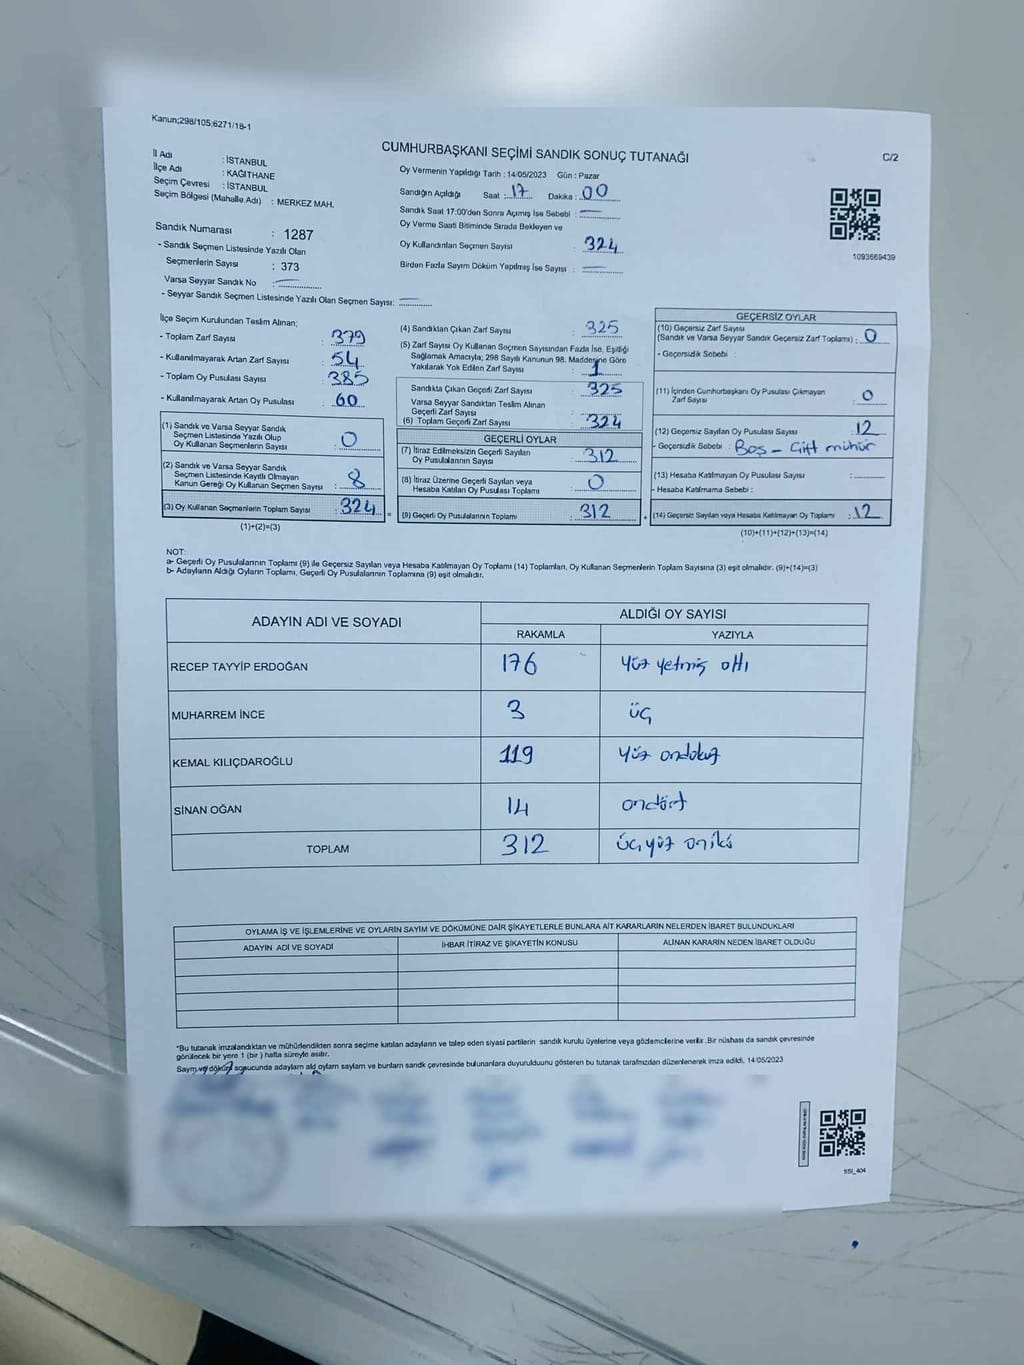 Kanun;298/105;6271/18-1
CUMHURBAŞKANI SEÇİMİ SANDIK SONUÇ TUTANAĞI
C/2
İl Adı : İSTANBUL
İlçe Adı : KAĞITHANE
Seçim Çevresi : İSTANBUL
Seçim Bölgesi (Mahalle Adı) : MERKEZ MAH.
Sandık Numarası : 1287
- Sandık Seçmen Listesinde Yazılı Olan
Seçmenlerin Sayısı : 373
Varsa Seyyar Sandık No :
- Seyyar Sandık Seçmen Listesinde Yazılı Olan Seçmen Sayısı:
Oy Vermenin Yapıldığı Tarih : 14/05/2023 Gün : Pazar
Sandığın Açıldığı Saat : 17 Dakika : 00
Sandık Saat 17:00'den Sonra Açımış İse Sebebi :
Oy Verme Saati Bitiminde Sırada Bekleyen ve
Oy Kullandırılan Seçmen Sayısı : 324
Birden Fazla Sayım Döküm Yapılmış İse Sayısı :
1093669439
İlçe Seçim Kurulundan Teslim Alınan;
- Toplam Zarf Sayısı : 379
- Kullanılmayarak Artan Zarf Sayısı : 54
- Toplam Oy Pusulası Sayısı : 385
- Kullanılmayarak Artan Oy Pusulası : 60
(1) Sandık ve Varsa Seyyar Sandık
Seçmen Listesinde Yazılı Olup
Oy Kullanan Seçmenlerin Sayısı : 0
(2) Sandık ve Varsa Seyyar Sandık
Seçmen Listesinde Kayıtlı Olmayan
Kanun Gereği Oy Kullanan Seçmen Sayısı : 8
(3) Oy Kullanan Seçmenlerin Toplam Sayısı : 324 =
(1)+(2)=(3)
(4) Sandıktan Çıkan Zarf Sayısı : 325
(5) Zarf Sayısı Oy Kullanan Seçmen Sayısından Fazla İse, Eşitliği
Sağlamak Amacıyla; 298 Sayılı Kanunun 98. Maddesine Göre
Yakılarak Yok Edilen Zarf Sayısı : 1
Sandıkta Çıkan Geçerli Zarf Sayısı : 325
Varsa Seyyar Sandıktan Teslim Alınan
Geçerli Zarf Sayısı :
(6) Toplam Geçerli Zarf Sayısı : 324
GEÇERLİ OYLAR
(7) İtiraz Edilmeksizin Geçerli Sayılan
Oy Pusulalarının Sayısı : 312
(8) İtiraz Üzerine Geçerli Sayılan veya
Hesaba Katılan Oy Pusulası Toplamı : 0
(9) Geçerli Oy Pusulalarının Toplamı : 312 +
GEÇERSİZ OYLAR
(10) Geçersiz Zarf Sayısı
(Sandık ve Varsa Seyyar Sandık Geçersiz Zarf Toplamı) : 0
- Geçersizlik Sebebi :
(11) İçinden Cumhurbaşkanı Oy Pusulası Çıkmayan
Zarf Sayısı : 0
(12) Geçersiz Sayılan Oy Pusulası Sayısı : 12
- Geçersizlik Sebebi : Boş - Çift mühür
(13) Hesaba Katılmayan Oy Pusulası Sayısı :
- Hesaba Katılmama Sebebi :
(14) Geçersiz Sayılan veya Hesaba Katılmayan Oy Toplamı : 12
(10)+(11)+(12)+(13)=(14)
NOT:
a- Geçerli Oy Pusulalarının Toplamı (9) ile Geçersiz Sayılan veya Hesaba Katılmayan Oy Toplamı (14) Toplamları, Oy Kullanan Seçmenlerin Toplam Sayısına (3) eşit olmalıdır. (9)+(14)=(3)
b- Adayların Aldığı Oyların Toplamı, Geçerli Oy Pusulalarının Toplamına (9) eşit olmalıdır.
ADAYIN ADI VE SOYADI ALDIĞI OY SAYISI
RAKAMLA YAZIYLA
RECEP TAYYİP ERDOĞAN 176 yüz yetmiş altı
MUHARREM İNCE 3 üç
KEMAL KILIÇDAROĞLU 119 yüz ondokuz
SİNAN OĞAN 14 ondört
TOPLAM 312 üçyüz oniki
OYLAMA İŞ VE İŞLEMLERİNE VE OYLARIN SAYIM VE DÖKÜMÜNE DAİR ŞİKAYETLERLE BUNLARA AİT KARARLARIN NELERDEN İBARET BULUNDUKLARI
ADAYIN ADI VE SOYADI İHBAR İTİRAZ VE ŞİKAYETİN KONUSU ALINAN KARARIN NEDEN İBARET OLDUĞU
*Bu tutanak imzalandıktan ve mühürlendikten sonra seçime katılan adayların ve talep eden siyasi partilerin sandık kurulu üyelerine veya gözlemcilerine verilir. Bir nüshası da sandık çevresinde
görülecek bir yere 1 (bir ) hafta süreyle asılır.
Sayım ve döküm sonucunda adayların ald oyların sayıların ve bunların sandık çevresinde bulunanlara duyurulduunu gösteren bu tutanak tarafımızdan düzenlenerek imza edildi, 14/05/2023
SSI_404